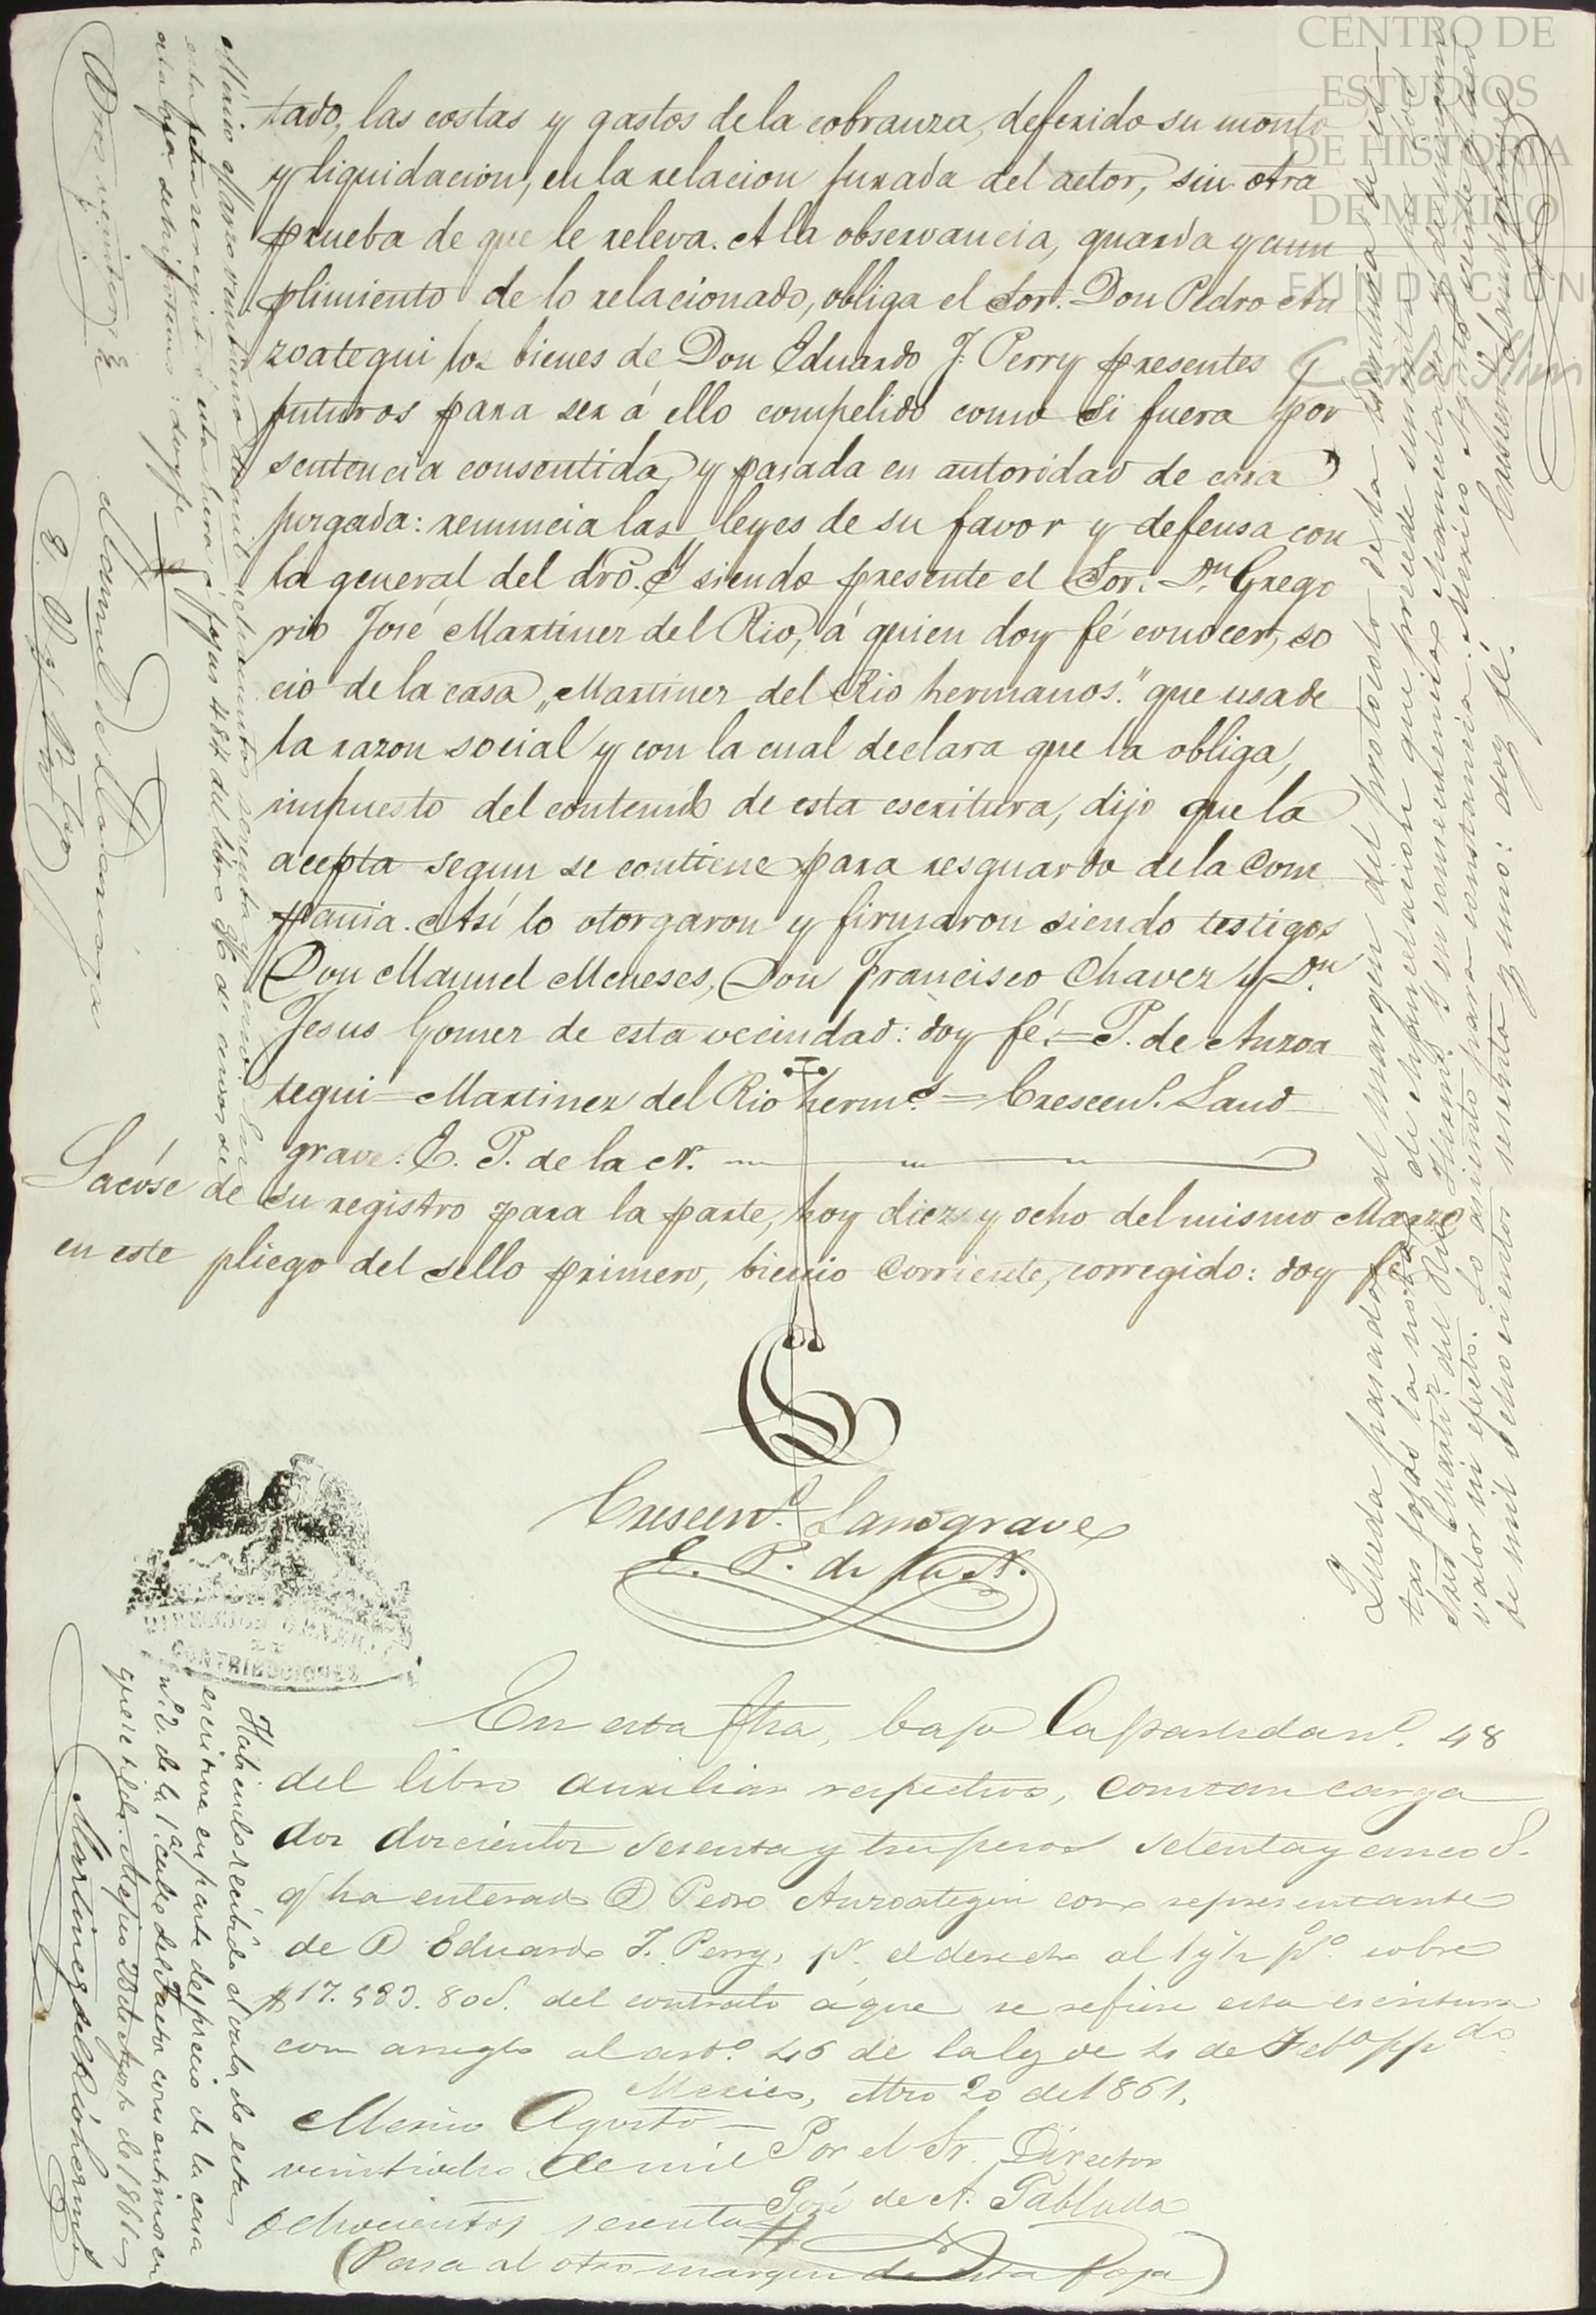 tado, las costas y gastos de la cobranza, deferido su monto
y liquidacion, en la relacion jurada del actor, sin otra
prueba de que le releva. A la observancia, guarda y cum
plimiento de lo relacionado, obliga el Sor. Don Pedro An
zoategui los bienes de Don Eduardo J. Perry presentes y
futuros para ser á ello compelido como si fuera por
sentencia consentida y pasada en autoridad de cosa
juzgada: renuncia las leyes de su favor y defensa con
la general del dro. Y siendo presente el Sor. Dn. Grego
rio José Martinez del Rio, á quien doy fé conocer, so
cio de la casa „Martinez del Rio hermanos." que usa de
la razon social y con la cual declara que la obliga,
impuesto del contenido de esta escritura, dijo que la
acepta segun se contiene para resguardo de la Com
pañia. Asi lo otorgaron y firmaron siendo testigos
Don Manuel Meneses, Don Francisco Chavez y Dn.
Jesus Gomez de esta vecindad: doy fé.=P. de Anzoa
tegui=Martinez del Rio herms.=Crescen. Land
grave. E. P. de la N.
Sacóse de su registro para la parte, hoy diez y ocho del mismo Marzo
en este pliego del sello primero, bienio corriente, corregido: doy fé
Crescen. Landgrave
E. P. de la N.
DIRECCION GENERAL
DE
CONTRIBUCIONES
En esta fha, bajo la partida no. 48
del libro auxiliar respectivo, constan carga
dos doscientos sesenta y tres pesos setenta y cinco
q ha enterado D Pedro Anzoategui como representante
de D Eduardo J. Perry, pr. el derecho al 1 y ½ po. sobre
$17.583.80 del contrato á que se refiere esta escritura
con arreglo al arto. 46 de la ley de 4 de Febo ppdo
Mexico, Mzo 20 de 1861.
Por el Sr. Director
José de A. Tablada
Mexico Agosto
veintiocho de mil
ochocientos sesenta
(Pasa al otro margen de esta foja)
Habiendo recibido el valor de esta
escritura en parte de precio de la casa
no. 2. de la 1a. calle del Factor consentimos en
que se tilde. Mejico Agosto de 1861
Martinez del Rio hermos
Mexico Marzo veintiuno de mil ochocientos sesenta y uno. En
esta fecha se registró esta á fojas 484 del libro 36 de
de hipotecas: doy fe
Manuel de Madariaga
Dros veinte rs
Queda pasado al margen del protocolo de esta escritura de es
tas fojas la nota de chancelacion que procede suscrita por los
Sres Martinez del Rio Herms. y en consentimiento chancelada y de ningun
valor ni efecto. Lo asiento para constancia. Mexico Agosto veinte
de mil ochocientos sesenta y uno: doy fé.
Crescen. Landgrave
CENTRO DE
ESTUDIOS
DE HISTORIA
DE MEXICO
FUNDACION
Carlos Slim